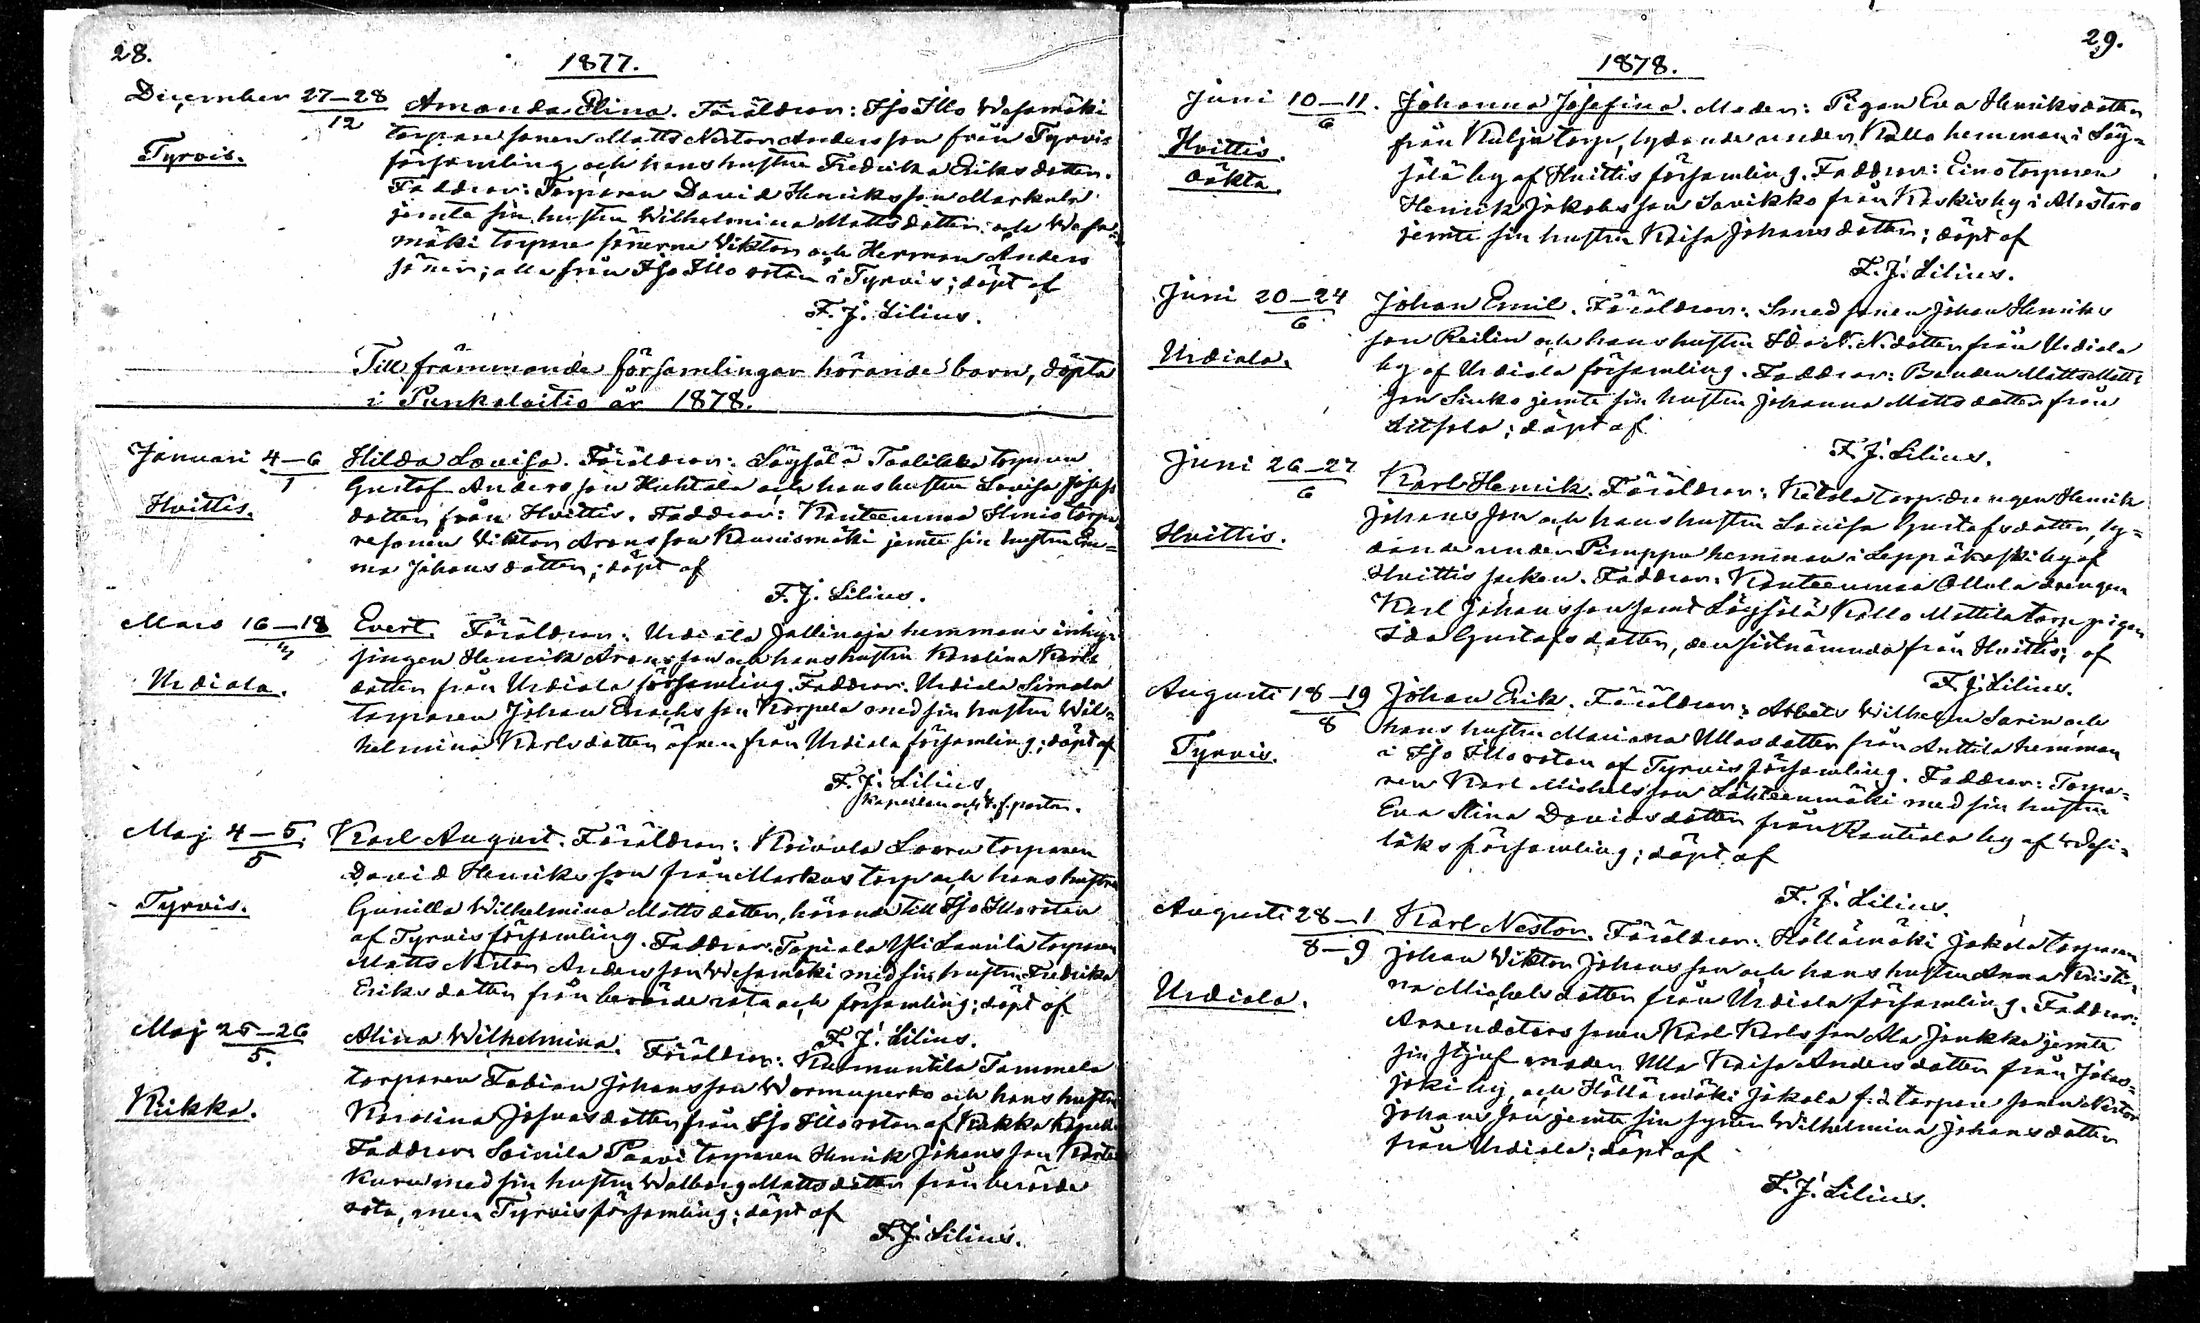 28.
1877.
December 27–28
12
Tyrvis.
Amanda Elina. Föräldrar: Iso Illo Wasamäki
torpare sonen Matts Nestor Andersson från Tyrvis
församling och hans hustru Fredrika Eriksdotter.
Faddrar: Torparen David Henriksson Markula
jemte sin hustru Wilhelmina Mattsdotter och Wasa-
mäki torpare sönerne Viktor och Herman Anders
söner; alla från Iso Illo rotan i Tyrvis; döpt af
F. J. Lilius.
Till främmande församlingar hörande barn, döpta
i Punkalaitio år 1878.
Januari 4–6
1
Hvittis.
Hilda Lovisa. Föräldrar: Löysälä torparen
Gustaf Andersson Huhtala och hans hustru Lovisa Josefs
dotter från Hvittis. Faddrar: Kanteenmaa torpa-
resonen Viktor Aronsson jemte sin hustru Em-
ma Johansdotter; döpt af
F. J. Lilius.
Mars 16–18
3
Urdiala.
Evert. Föräldrar: Urdiala hemmans inhy-
singen Henrik Aronsson och hans hustru Karolina Karls
dotter från Urdiala församling. Faddrar: Urdiala Simola
torparen Johan Enochsson Korpela med sin hustru Wil-
helmina Karlsdotter äfven från Urdiala församling; döpt af
F. J. Lilius,
Kapellan och t. f. pastor.
Maj 4–5.
5
Tyrvis.
Karl August. Föräldrar: torparen
David Henriksson från Markus torp och hans hustru
Gunilla Wilhelmina Mattsdotter, hörande till Iso Illo rotan
af Tyrvis församling. Faddrar: torparen
Matts Nestor Andersson Wasamäki med sin hustru Fredrika
Eriksdotter från berörde rota och församling; döpt af
F. J. Lilius.
Maj 25–26
5.
Kiikka.
Alina Wilhelmina. Föräldrar: Tammela
torparen Fabian Johansson och hans hustru
Karolina Josuasdotter från Iso Illo rotan af Kiikka kapell.
Faddrar: Paavi torparen Henrik Johansson
med sin hustru Walborg Mattsdotter från berörde
rota, men Tyrvis församling; döpt af
F. J. Lilius.
29.
1878.
Juni 10–11.
6
Hvittis.
oäkta.
Johanna Josefina. Moder: Pigan Eva Henriksdotter
från Kulju torp, lydande under Kallo hemman i Löy-
sälä by af Hvittis församling. Faddrar: Eino torparen
Henrik Jakobsson Savikko från Koskis by i Alastaro
jemte sin hustru Kaisa Johansdotter; döpt af
F. J. Lilius.
Juni 20–24
6
Urdiala.
Johan Emil. Föräldrar: Smed sonen Johan Henriks
son Reilin och hans hustru Ida N. N. dotter från Urdiala
by af Urdiala församling. Faddrar: Bonden Matts Matts
son jemte sin hustru Johanna Mattsdotter från
döpt af
F. J. Lilius.
Juni 26–27
6
Hvittis.
Karl Henrik. Föräldrar: Ketola torp drengen Henrik
Johansson och hans hustru Lovisa Gustafsdotter, ly-
dande under hemman i Leppäkoski by af
Hvittis socken. Faddrar: Kanteenmaa Ollola drengen
Karl Johansson samt Löysälä Kallo Mattila torp pigan
Ida Gustafsdotter, den sistnämnda från Hvittis; af
F. J. Lilius.
Augusti 18–19
8
Tyrvis.
Johan Erik. Föräldrar: Arbets Wilhelm Sarin och
hans hustru Mariana Ullasdotter från Anttila hemman
i Iso Illo rotan af Tyrvis församling. Faddrar: Torpa-
ren Karl Michelsson Lähteenmäki med sin hustru
Eva Stina Davidsdotter från by af Wesi-
laks församling; döpt af
F. J. Lilius.
Augusti 28–1
8–9
Urdiala.
Karl Nestor. Föräldrar: Höllämäki Jokela torparen
Johan Viktor Johansson och hans hustru Anna Kristi-
na Michelsdotter från Urdiala församling. Faddrar:
Arrendators sonen Karl Karlsson Ala Jaukka jemte
sin stjuf moder Ulla Kaisa Andersdotter från
joki by, och Höllämäki Jokela f. d. torpare sonen Nestor
Johansson jemte sin syster Wilhelmina Johansdotter
från Urdiala; döpt af
F. J. Lilius.